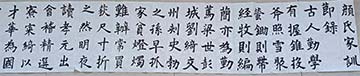 顏氏家訓
即錄
古人勤學
有握錐投
斧照雪聚
螢鋤則帶
經牧則編
簡亦為勤
篤梁世彭
城劉綺交
州刺史勃
之孫早孤
家貧燈燭
難辦常買
荻尺寸折
之然明夜
讀孝元初出
會稽精選
寮寀綺以
才華為國